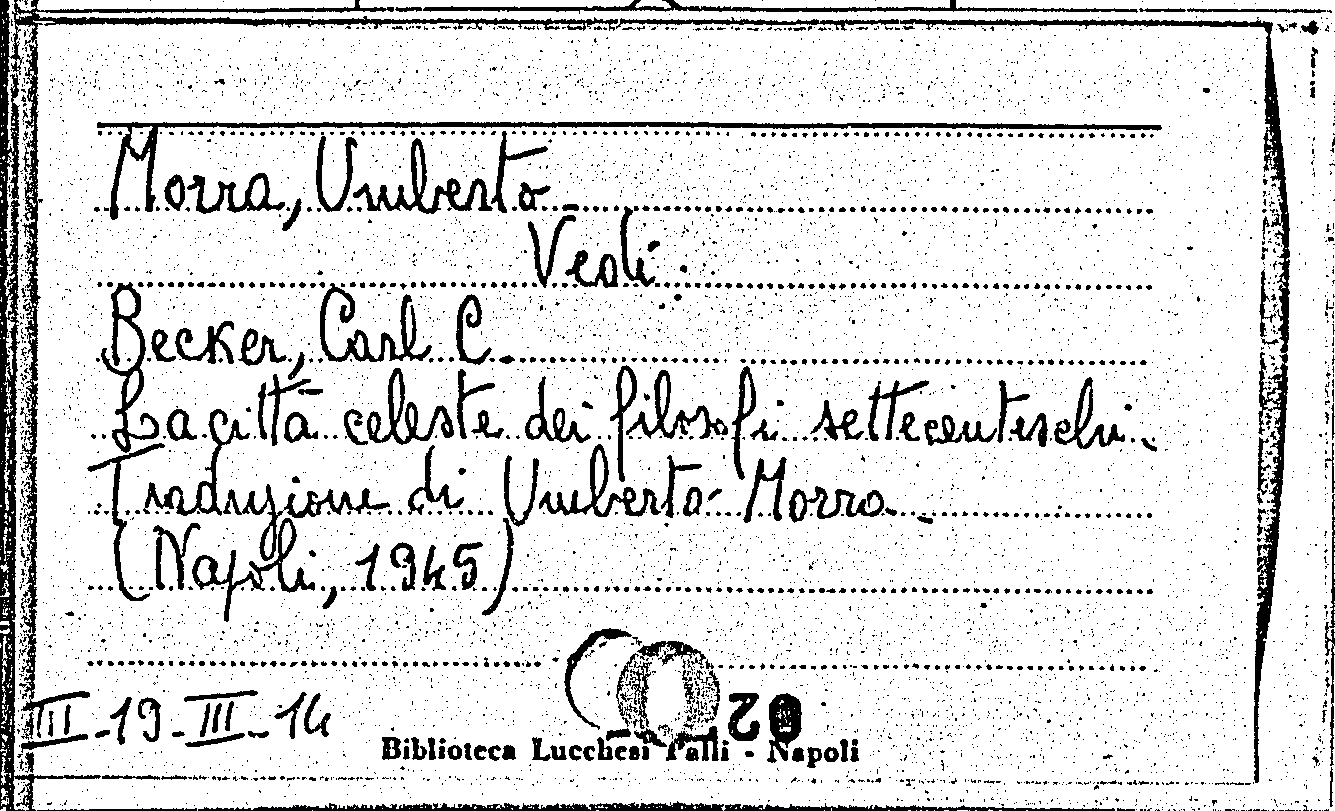 Morra, Umberto.
Vedi:
Becker, Carl C.
La città celeste dei filosofi settecenteschi.
Traduzione di Umberto Morra.
(Napoli, 1945)
III-19-III-14
20
Biblioteca Lucchesi Palli - Napoli